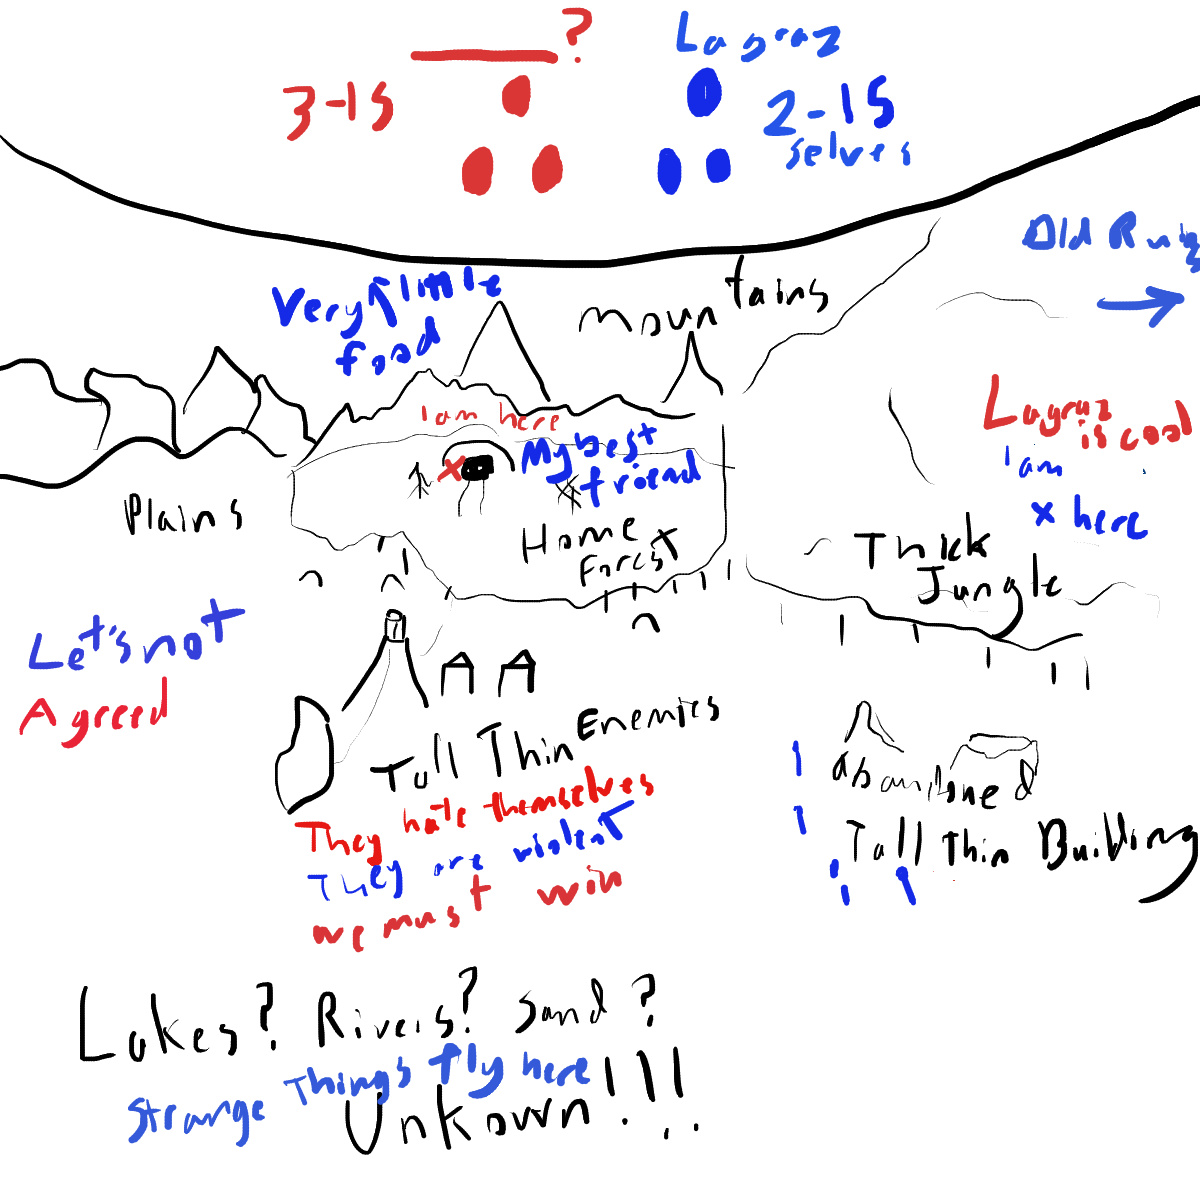 ?
Lagraz
3-15
2-15
selves
Old Ruins
Very little
food
mountains
I am here
Lagraz
is cool
My best
friend
I am
x here
Plains
Home
Forest
Thick
Jungle
Let's not
Agreed
Tall Thin Enemies
They hate themselves
They are violent
we must win
abandoned
Tall Thin Building
Lakes? Rivers? Sand?
Strange Things fly here
Unkown!!!